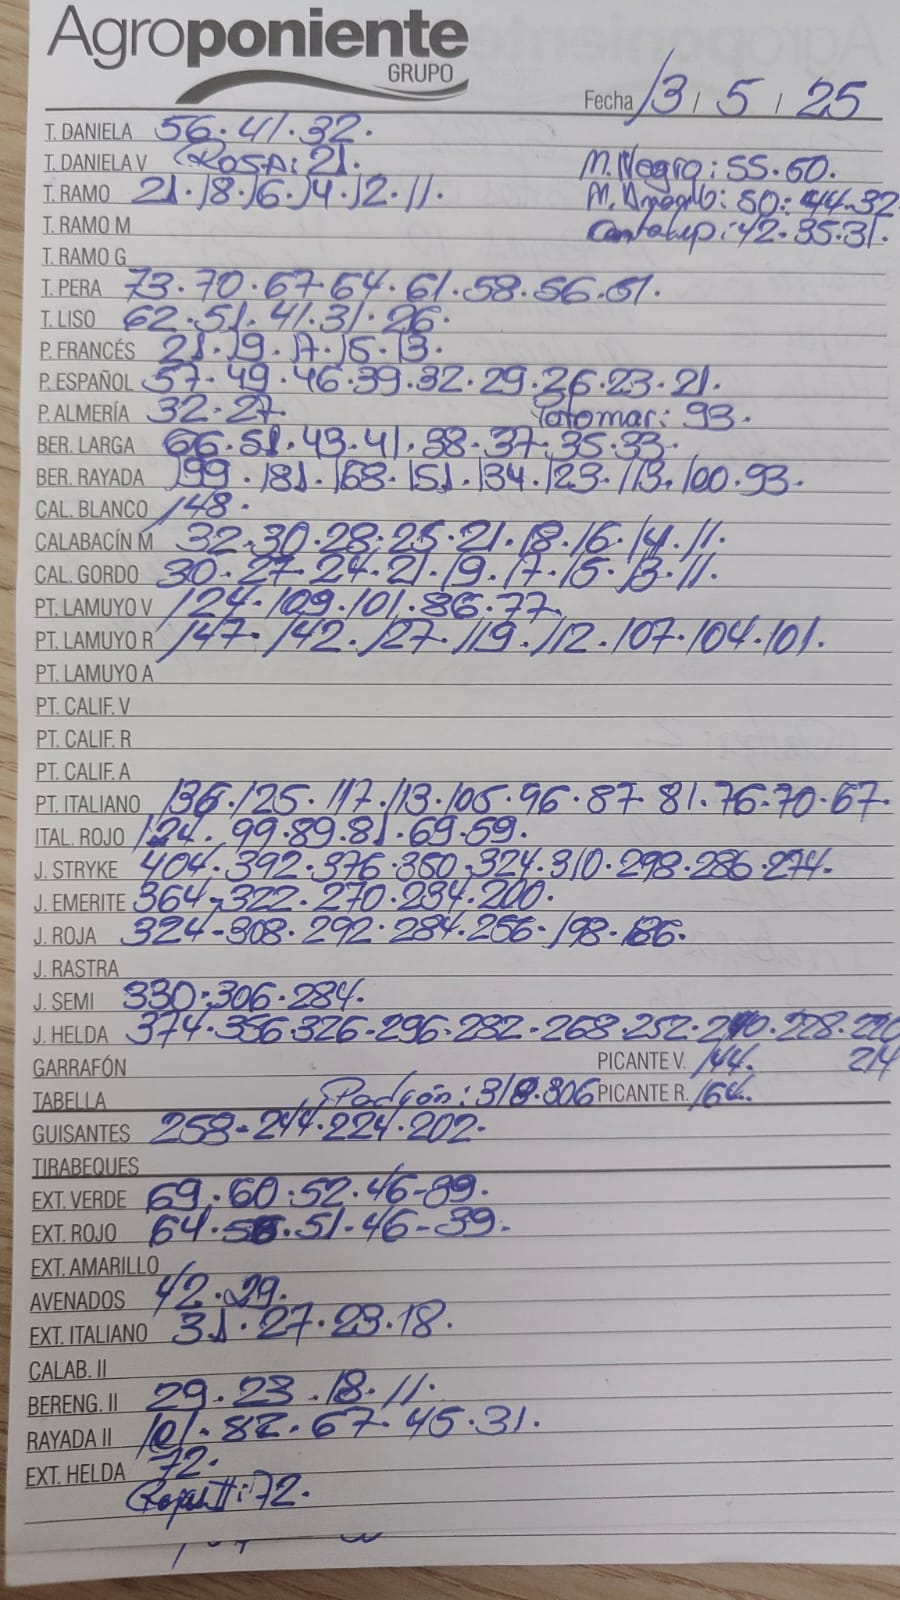 Agroponiente
GRUPO
Fecha 13 / 5 / 25
T. DANIELA 56.41.32.
T. DANIELA V ROSA: 21. M. Negro: 55.50.
T. RAMO 21.18.16.14.12.11. M. Amarillo: 50.44.32
T. RAMO M Cantalup: 42.35.31.
T. RAMO G
T. PERA 73.70.67.64.61.58.56.51.
T. LISO 62.51.41.31.26.
P. FRANCÉS 21.19.17.15.13.
P. ESPAÑOL 57.49.46.39.32.29.26.23.21.
P. ALMERÍA 32.27 Totomar: 93.
BER. LARGA 66.51.43.41.38.37.35.33.
BER. RAYADA 199.181.168.151.134.123.113.100.93.
CAL. BLANCO 148.
CALABACÍN M 32.30.28.25.21.18.16.14.11.
CAL. GORDO 30.27.24.21.19.17.15.13.11.
PT. LAMUYO V 124.109.101.86.77
PT. LAMUYO R 147.142.127.119.112.107.104.101.
PT. LAMUYO A
PT. CALIF. V
PT. CALIF. R
PT. CALIF. A
PT. ITALIANO 136.125.117.113.105.96.87.81.76.70.67.
ITAL. ROJO 124.99.89.81.69.59.
J. STRYKE 404.392.376.350.324.310.298.286.274.
J. EMERITE 364-322.270.234.200.
J. ROJA 324-308.292.284.256.198.186.
J. RASTRA
J. SEMI 330.306.284.
J. HELDA 374.356.326-296-282-268.252.240.228.220
GARRAFÓN PICANTE V. 144. 214
TABELLA 318.306 PICANTE R. 164.
GUISANTES 258-244.224.202.
TIRABEQUES
EXT. VERDE 69.60.52.46-39.
EXT. ROJO 64.56.51-46-39.
EXT. AMARILLO
AVENADOS 42.29.
EXT. ITALIANO 31.27.23.18.
CALAB. II
BERENG. II 29.23.18.11.
RAYADA II 101.82.67.45.31.
EXT. HELDA 72.
72.